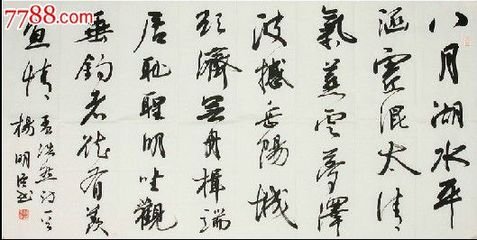 7788.com
八月湖水平
涵虚混太清
氣蒸云夢澤
波撼岳陽城
欲濟無舟楫端
居耻聖明坐觀
垂釣者徒有羨
魚情
孟浩然诗一首
楊明臣书